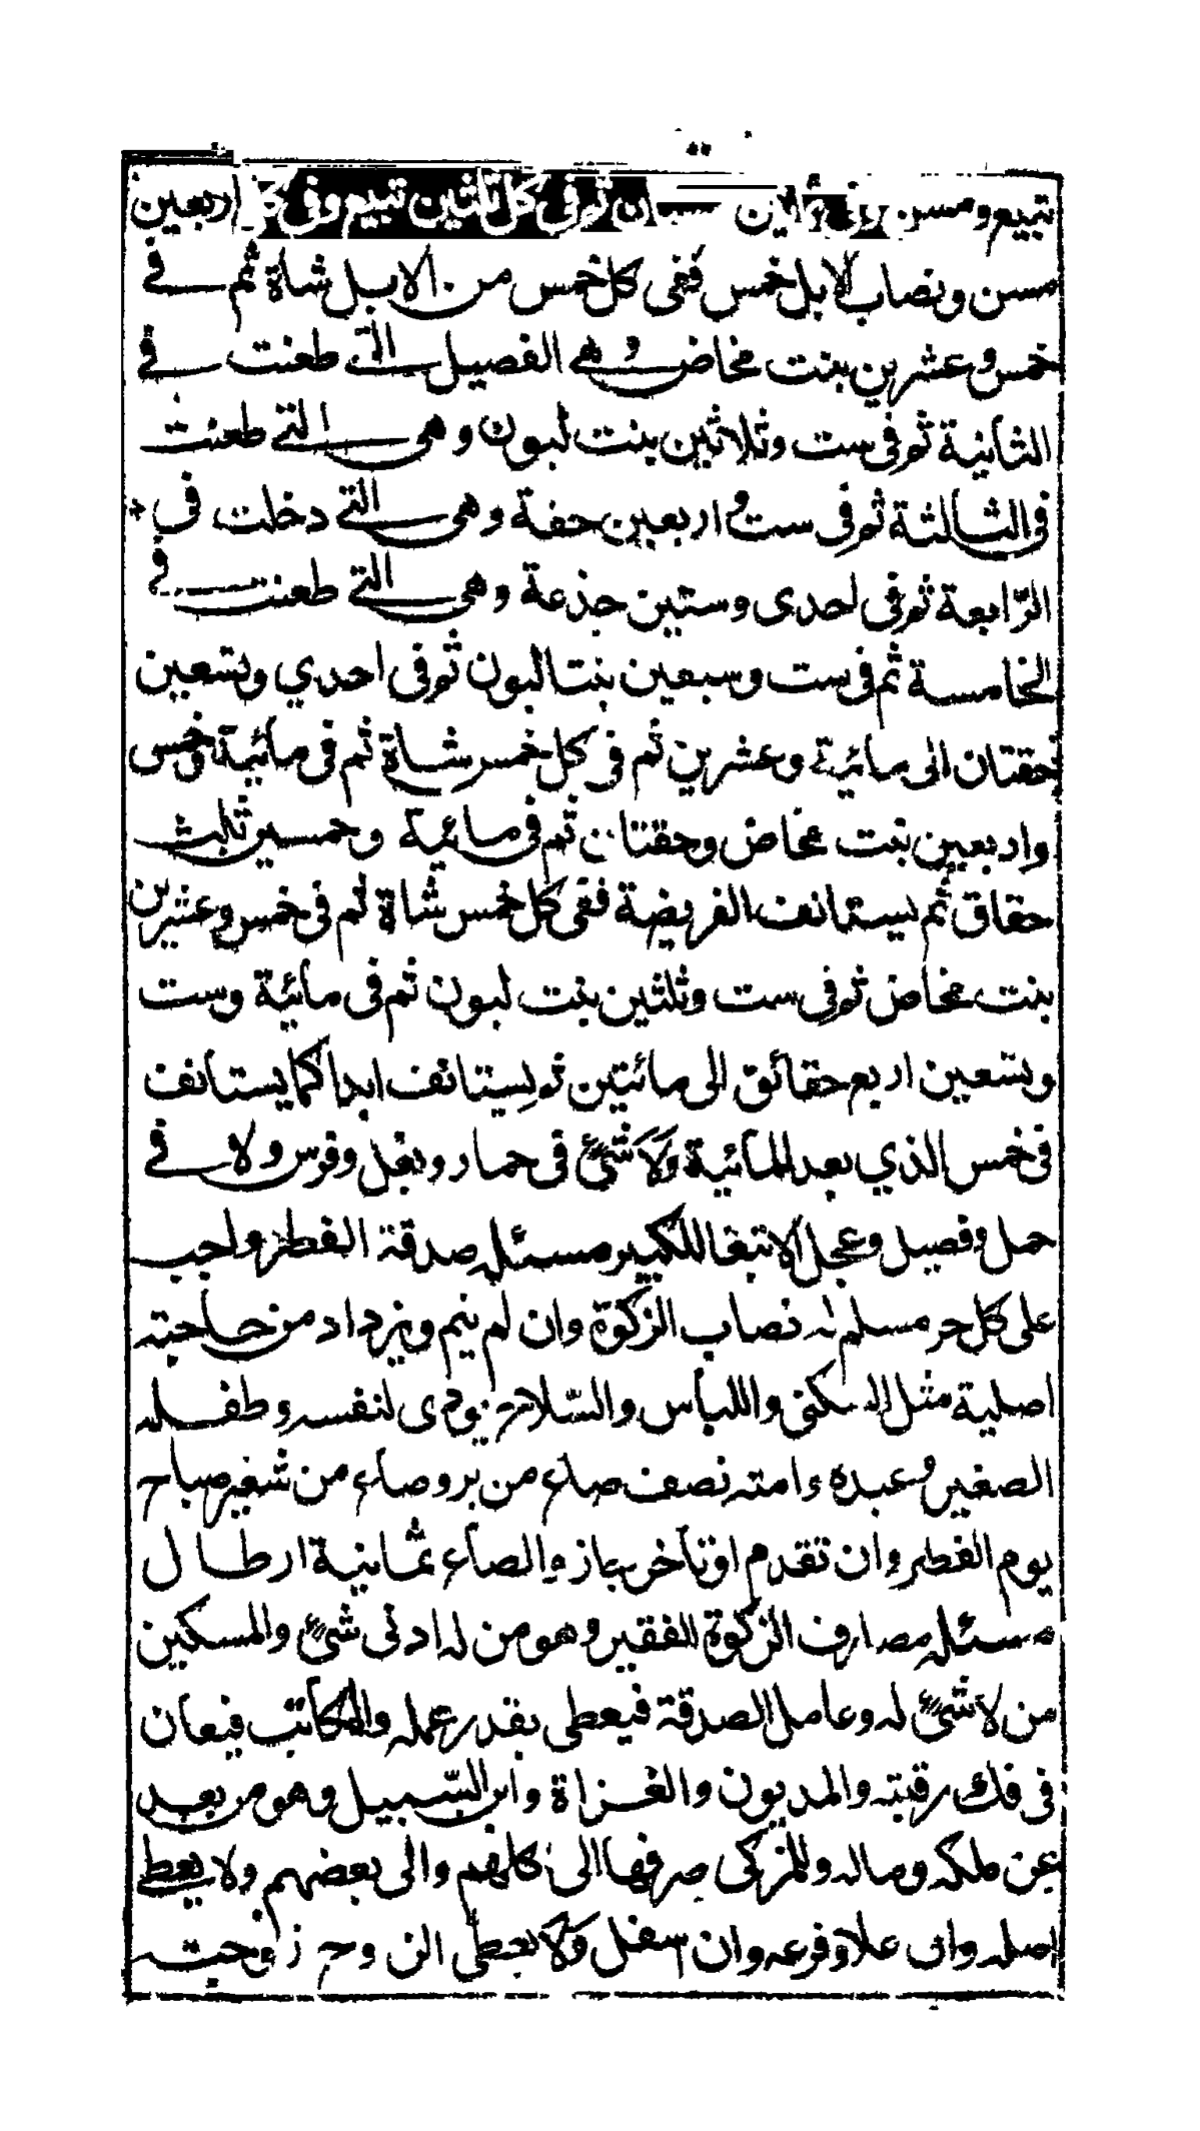 تبيع ومسن وفى ثمانين مسنتان ثم فى كل ثلثين تبيع وفى كل اربعين
مسن ونصاب الابل خمس ففى كل خمس من الابل شاة ثم فى
خمس وعشرين بنت مخاض وهى الفصيل التى طعنت فى
الثانية ثم فى ست وثلاثين بنت لبون وهى التى طعنت
فى الثالثة ثم فى ست واربعين حقة وهى التى دخلت فى
الرّابعة ثم فى احدى وستين جذعة وهى التى طعنت فى
الخامسة ثم فى ست وسبعين بنتا لبون ثم فى احدي وتسعين
حقتان الى مائية وعشرين ثم فى كل خمس شاة ثم فى مائية وخمس
واربعين بنت مخاض وحقتان ثم فى مائية وخمسين ثلث
حقاق ثم يستانف الفريضة ففى كل خمس شاة ثم فى خمس وعشرين
بنت مخاض ثم فى ست وثلثين بنت لبون ثم فى مائية وست
وتسعين اربع حقائق الى مائتين ثم يستانف ابدا كما يستانف
فى خمس الذي بعد المائية ولا شئ فى حمار وبغل وفرس ولا فى
حمل وفصيل وعجل الا تبعا للكبير مسئله صدقة الفطر واجب
على كل حر مسلم له نصاب الزكوة وان لم ينم ويزداد من حاجته
اصلية مثل السكنى واللباس والسّلاح يودى لنفسه وطفله
الصغير وعبده وامته نصف صاع من بر وصاع من شعير صباح
يوم الفطر وان تقدم او تاخر جاز والصاع ثمانية ارطال
مسئله مصارف الزكوة الفقير وهو من له ادنى شئ والمسكين
من لا شئ له وعامل الصدقة فيعطى بقدر عمله والمكاتب فيعان
فى فك رقبته والمديون والغزاة وابن السّبيل وهو من بعد
عن ملكه وماله وللمزكى صرفها الى كلهم والى بعضهم ولا يعطى
اصله وان علا وفرعه وان اسفل ولا يعطى الزوج زوجته